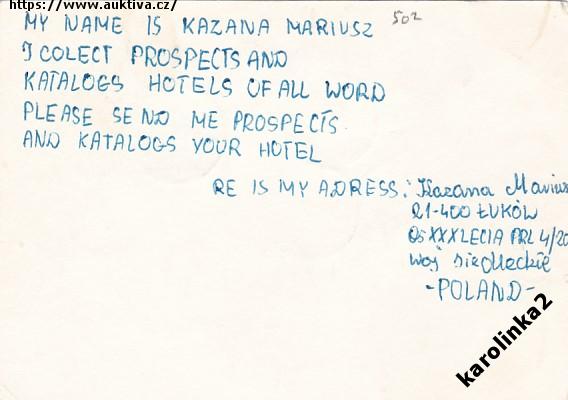 https://www.auktiva.cz/
MY NAME IS KAZANA MARIUSZ 502
I COLECT PROSPECTS AND
KATALOGS HOTELS OF ALL WORD
PLEASE SEND ME PROSPECTS
AND KATALOGS YOUR HOTEL
RE IS MY ADRESS: Kazana Mariusz
21-400 ŁUKÓW
Os XXXLECIA PRL 4/20
woj siedleckie
-POLAND-
karolinka2